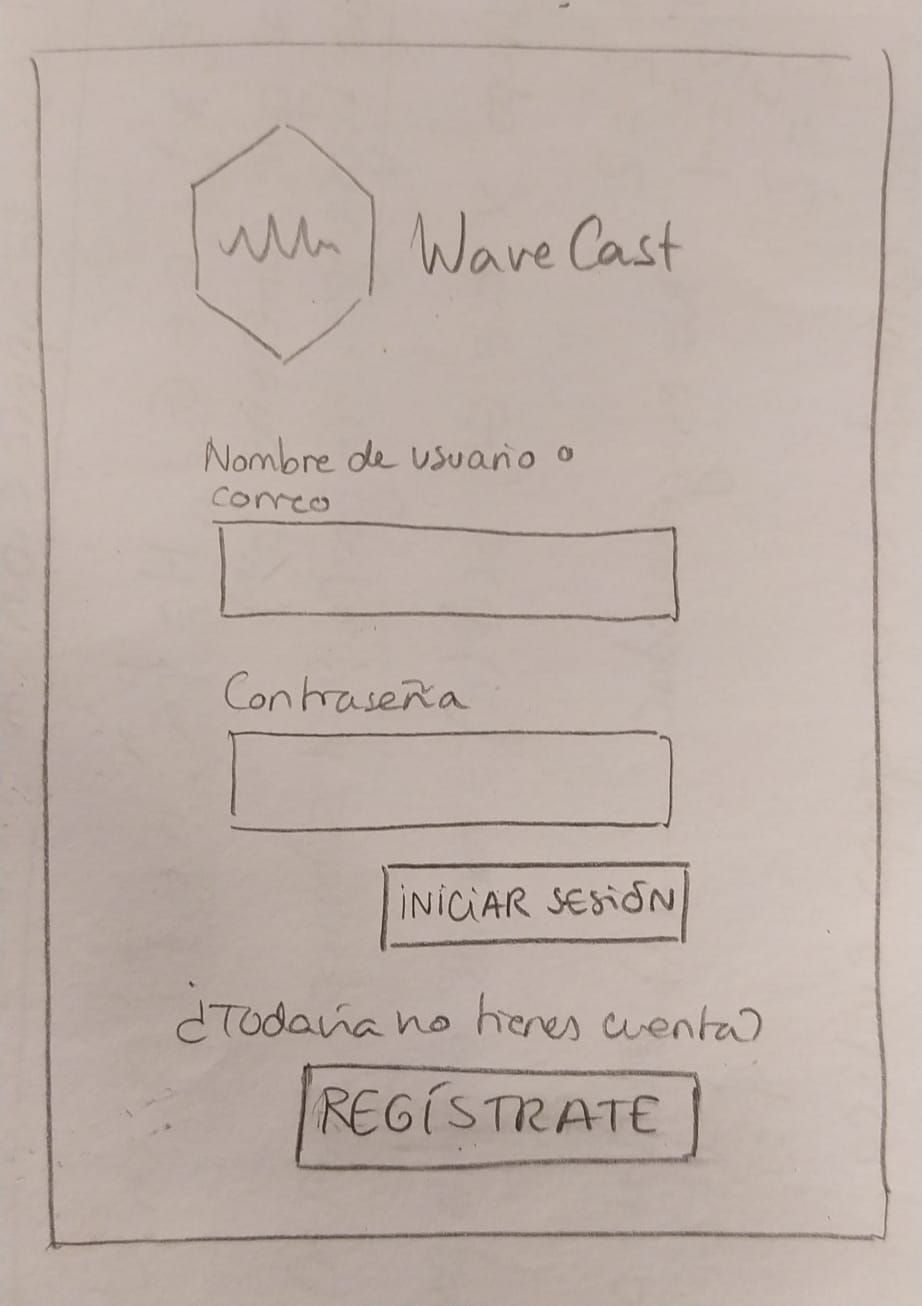 WaveCast
Nombre de usuario o
correo
Contraseña
INICIAR SESIÓN
¿Todavía no tienes cuenta?
REGÍSTRATE